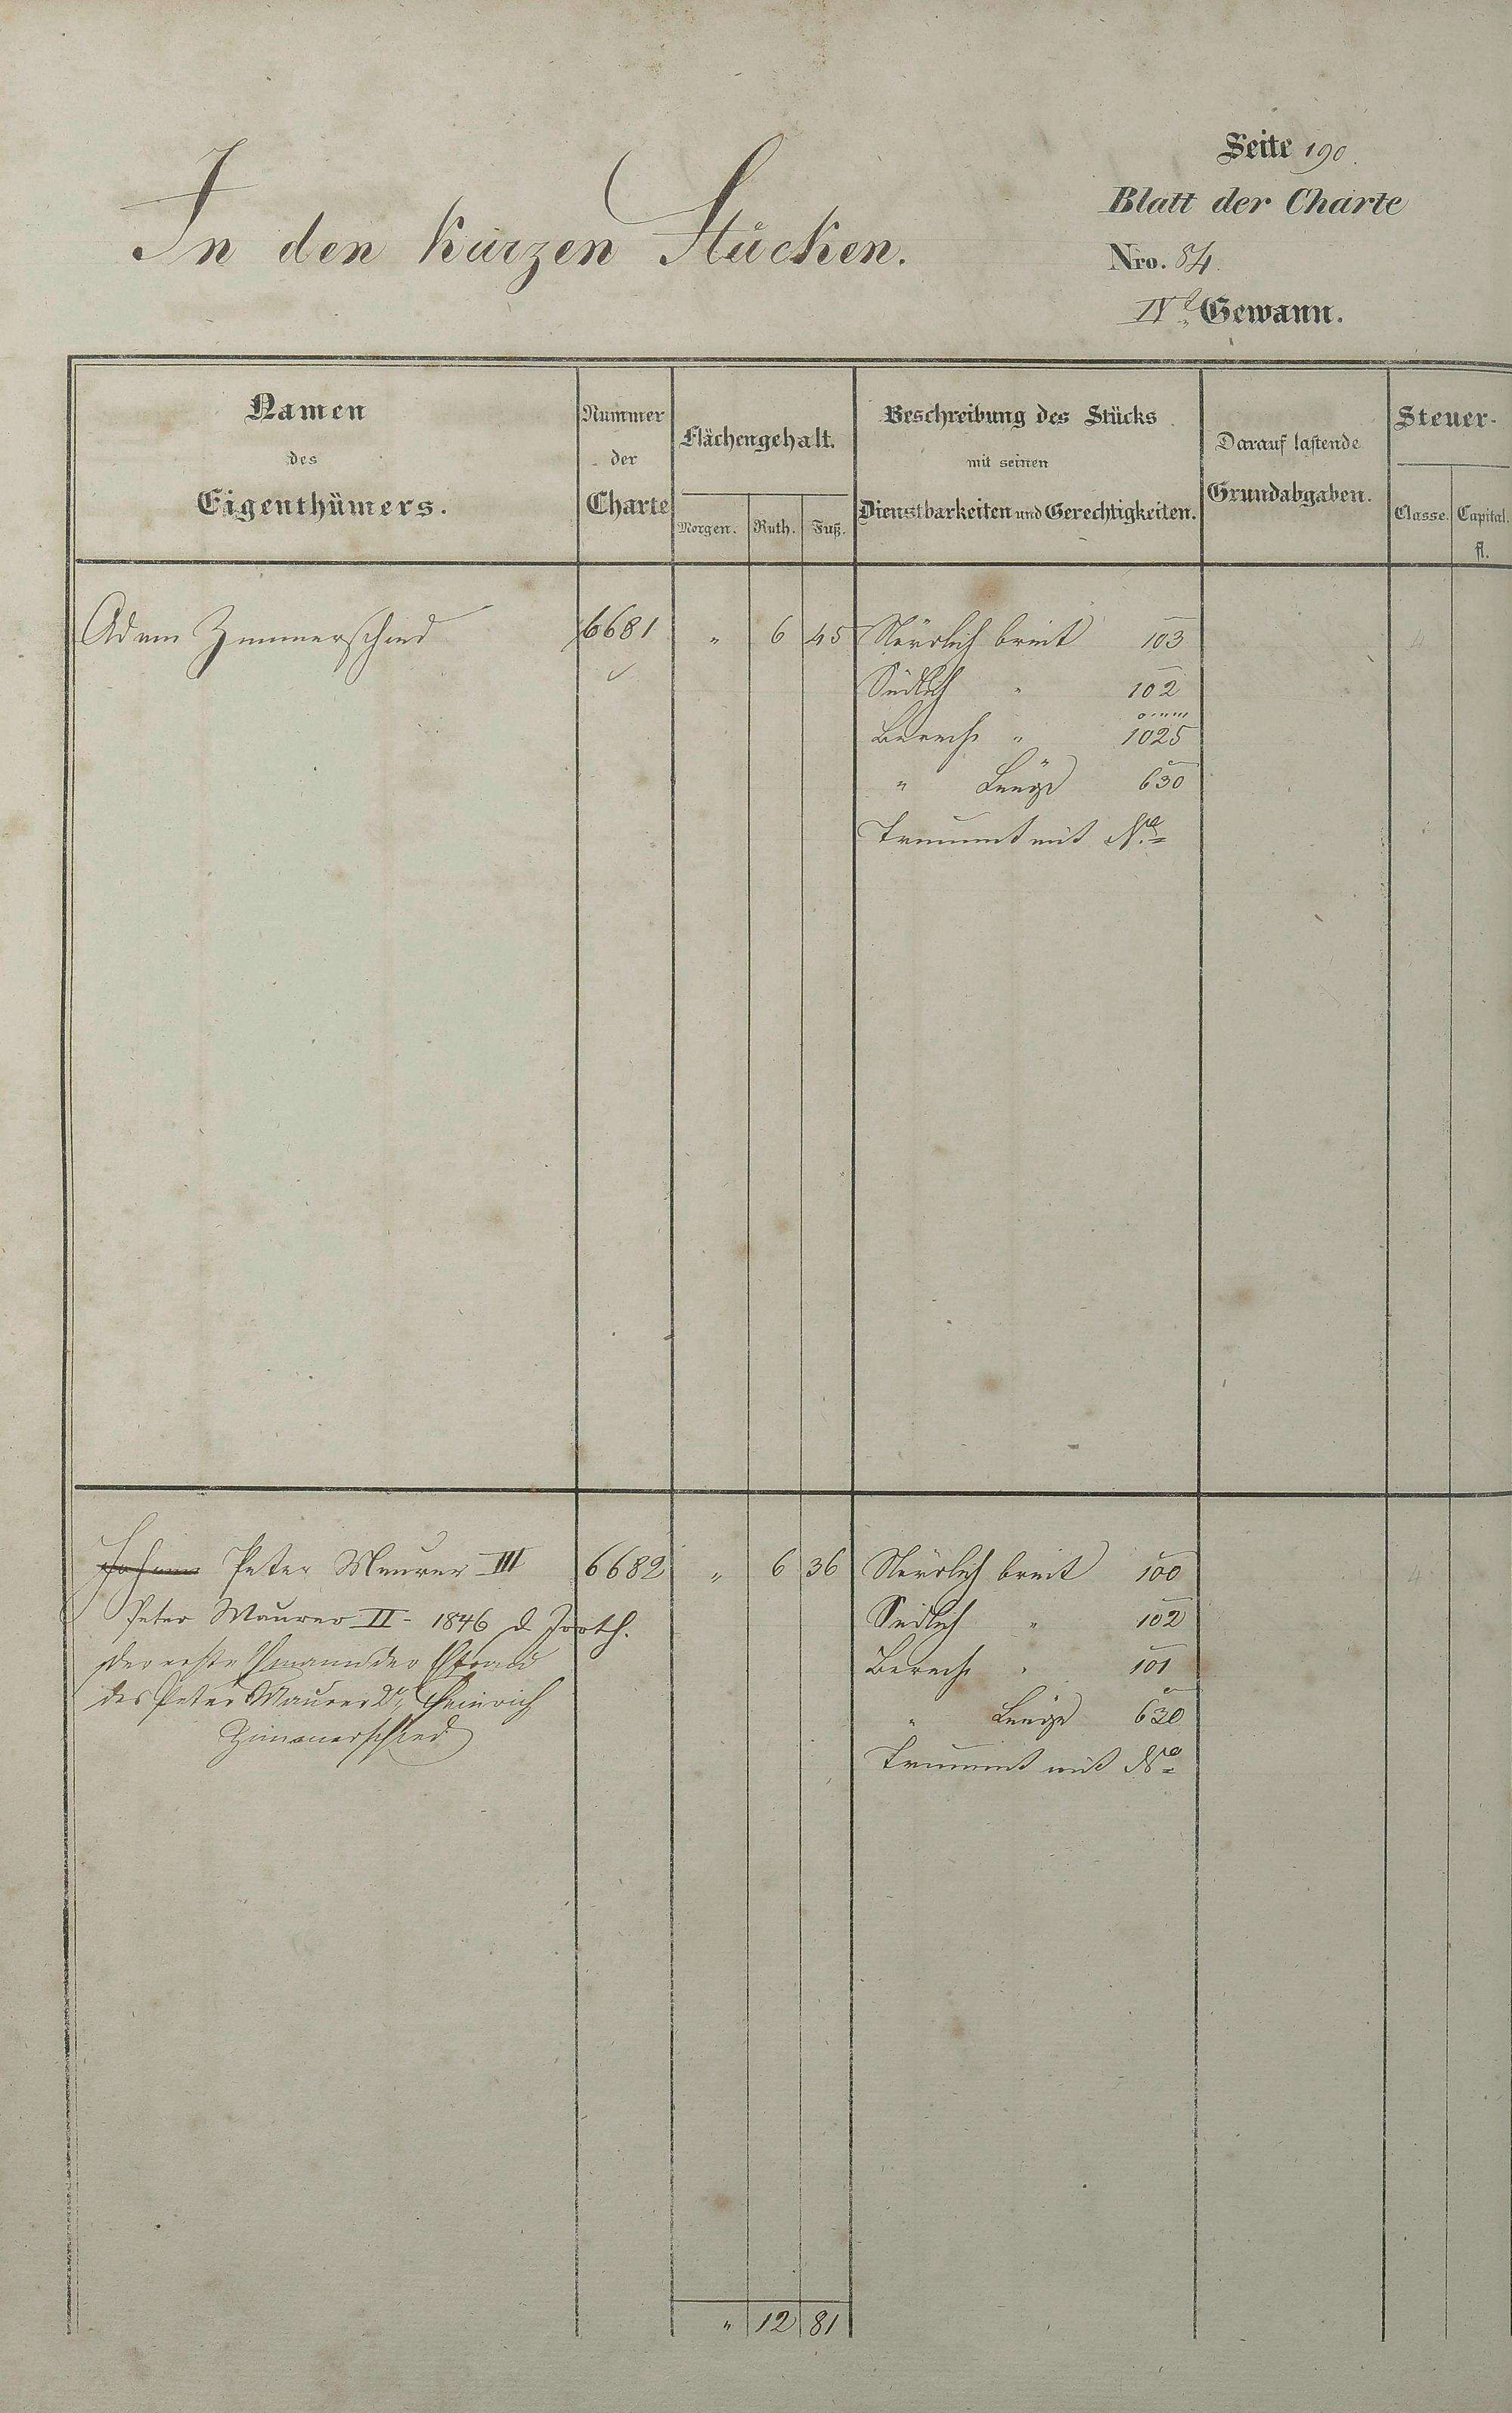 Seite 190.
Blatt der Charte
In den kurzen Stücken.
Nro. 84.
IVte Gewann.
Namen des Eigenthümers.
Nummer der Charte
Flächengehalt.
Morgen. Ruth. Fuß.
Beschreibung des Stücks mit seinen Dienstbarkeiten und Gerechtigkeiten.
Darauf lastende Grundabgaben.
Steuer-
Classe. Capital.
fl.
Adam Zimmerschied 6681 " 6 45 Nördlich breit 103 4
Südlich " 102
Berech " 1025
" Länge 630
Trummt mit No =
Johann Peter Maurer III 6682 " 6 36 Nördlich breit 100 4
Peter Maurer II - 1846
Südlich " 102
der erste Ehmann der Ehfrau
Berech " 101
des Peter Maurer 2r, Heinrich
" Länge 630
Zimmerschied
Trummt mit No =
" 12 81